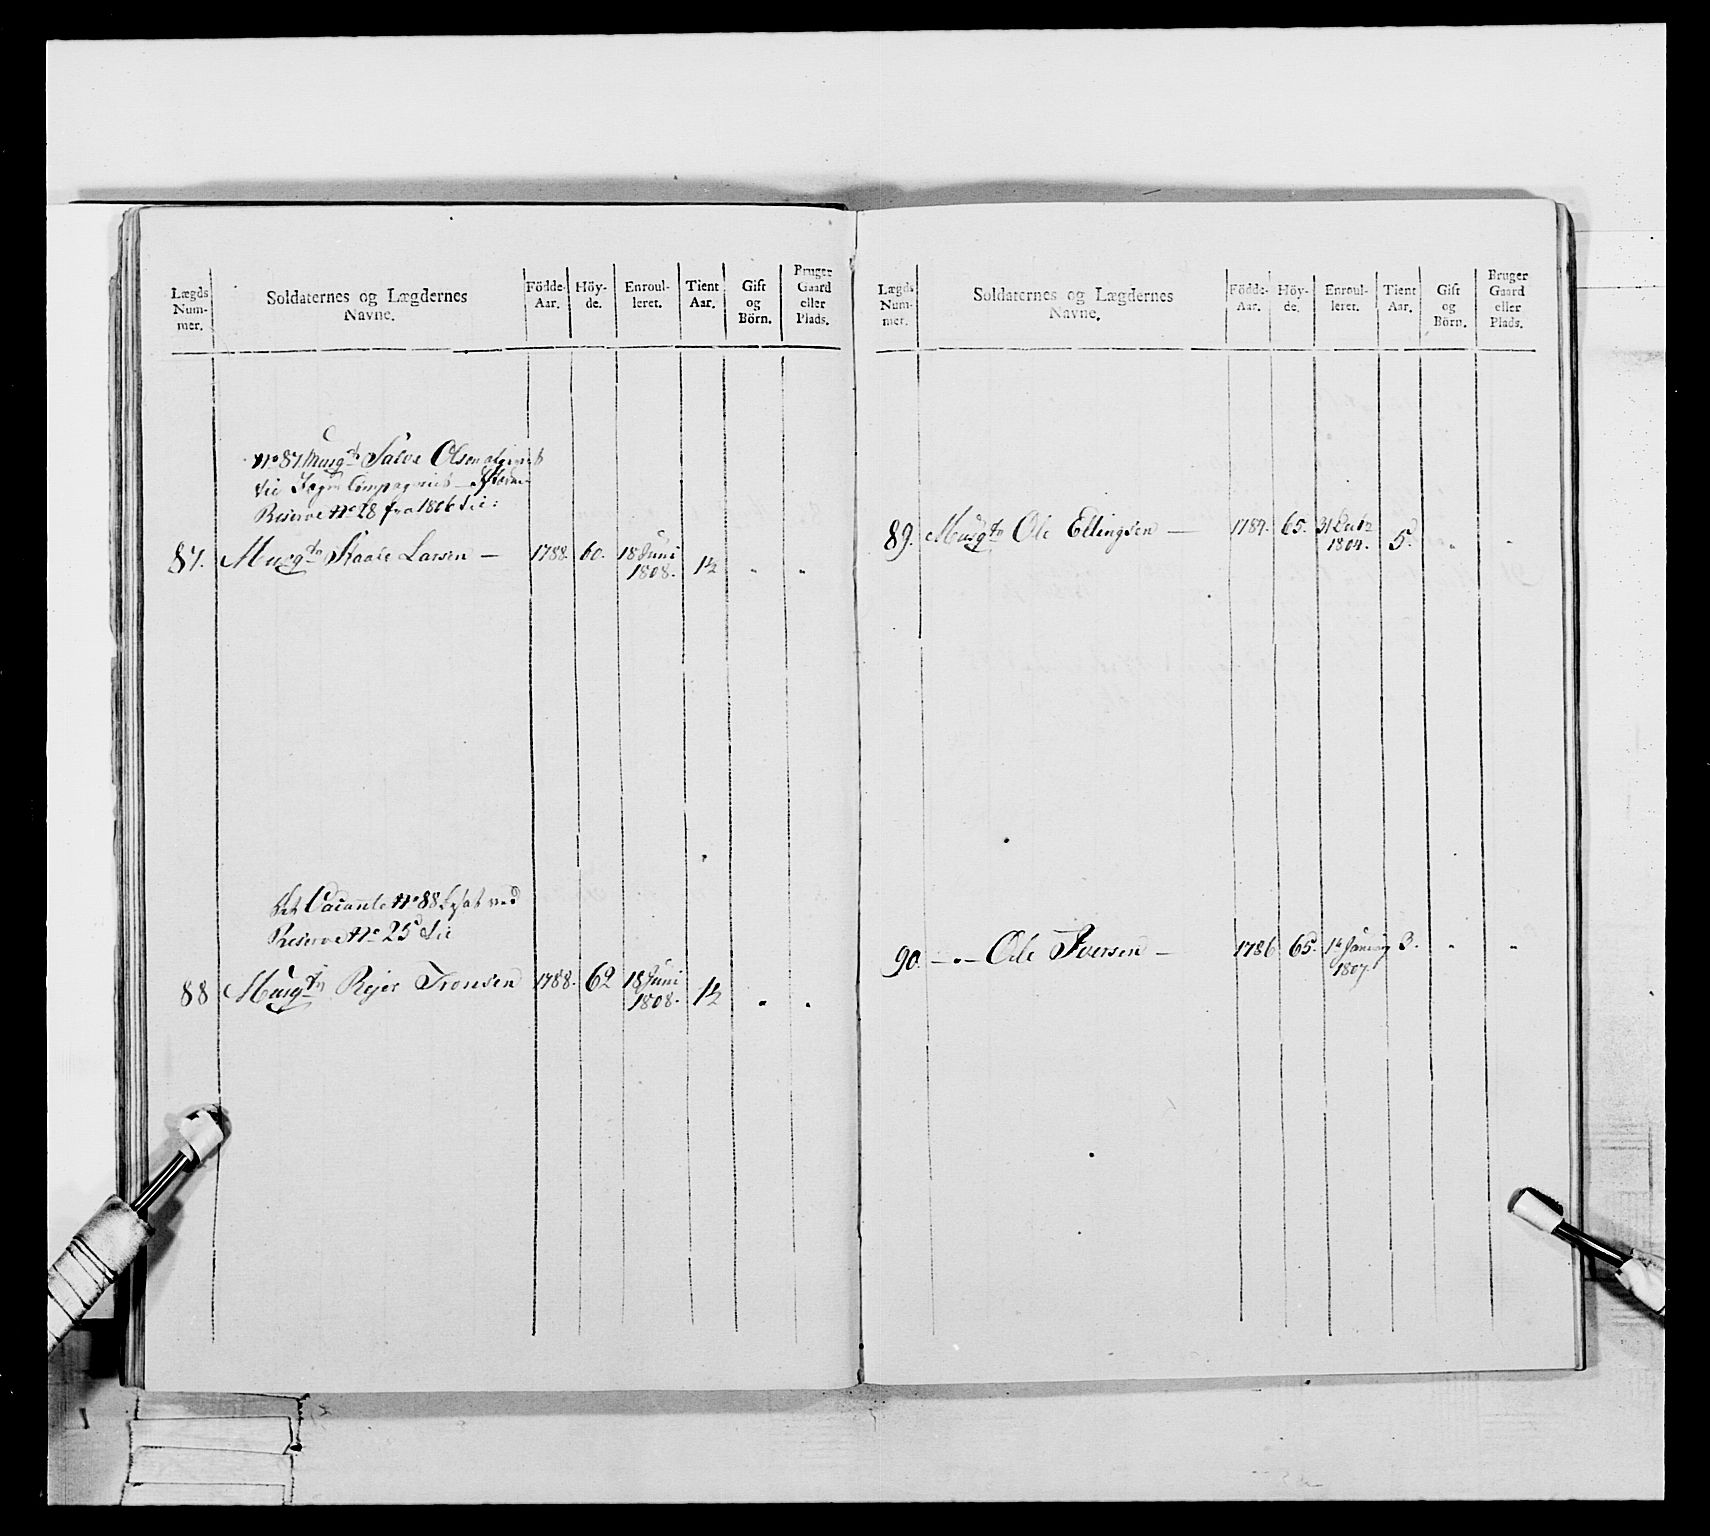 Lægds Num- mer. Soldaternes og Lægdernes Navne. Födde- Aar. Höy- de. Enroul- leret. Tient Aar. Gift og Börn. Bruger Gaard eller Plads.
No 87 Musqt Salve Olsen
Compagniet
Reserve No 28 fra 1806
87. Musqtr Kaale Larsen — 1788. 60. 18 Juni 1808. 1½ " "
Vacante No 88 ved
Reserve No 25
88 Musqtr Rejer Tronsen 1788. 62 18 Juni 1808. 1½ " "
Lægds Num- mer. Soldaternes og Lægdernes Navne. Födde- Aar. Höy- de. Enroul- leret. Tient Aar. Gift og Börn. Bruger Gaard eller Plads.
89. Musqtr Ole Ellingsen — 1784. 65. 31 Decbr 1804. 5. " "
90. — " — Ole Iversen — 1786 65. 1t Januarj 1807. 3. " "